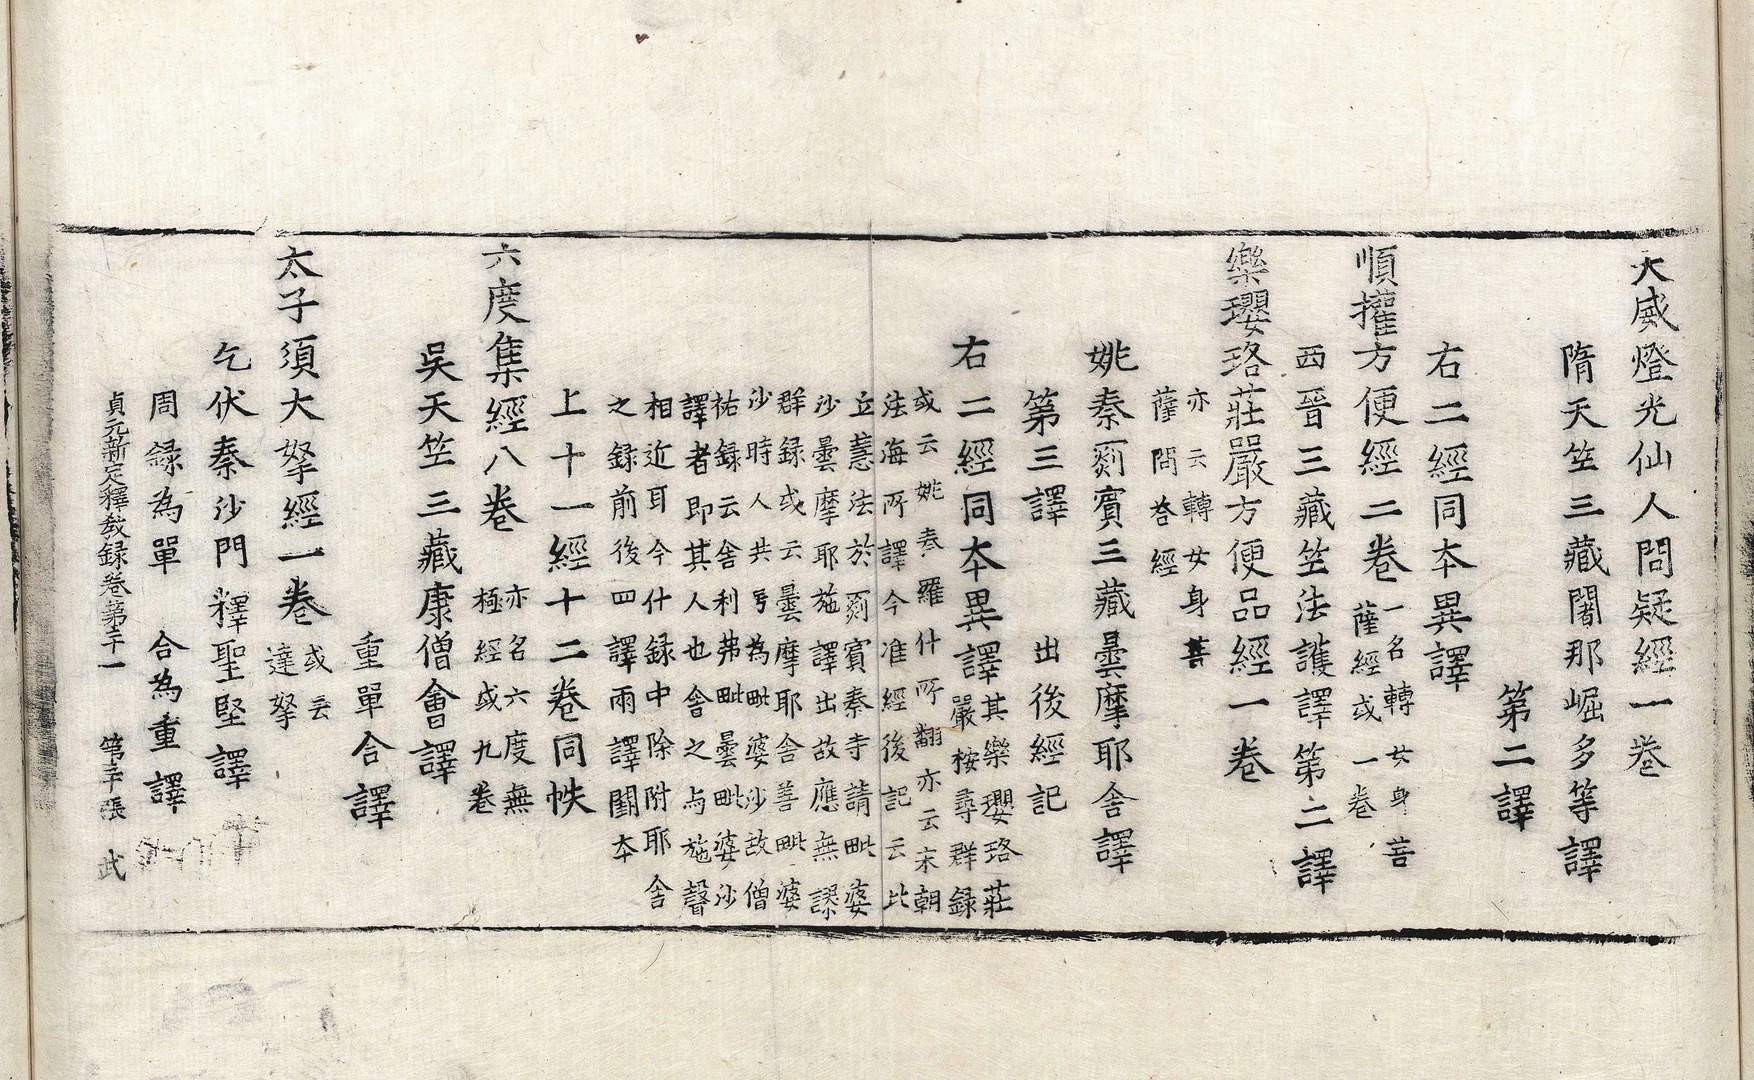 大威燈光仙人問疑經一卷
隋天竺三藏闍那崛多等譯
第二譯
右二經同本異譯
順權方便經二卷一名轉女身菩
薩經或一卷
西晉三藏竺法護譯第二譯
樂瓔珞莊嚴方便品經一卷
亦云轉女身菩
薩問荅經
姚秦罽賓三藏曇摩耶舍譯
第三譯 出後經記
右二經同本異譯其樂瓔珞莊
嚴桉尋群録
或云姚秦羅什所翻亦云宋朝
法海所譯今准經後記云比
丘慧法於罽賓秦寺請毗婆
沙曇摩耶施譯出故應無謬
群録或云曇摩耶舍善毗婆
沙時人共号為毗婆沙故僧
祐録云舍利弗毗曇毗婆沙
譯者即其人也舍之与施聲
相近耳今什録中除附耶舍
之録前後四譯兩譯闕本
上十一經十二卷同帙
六度集經八卷亦名六度無
極經或九卷
吳天竺三藏康僧會譯
重單合譯
太子須大拏經一卷或云
達拏
乞伏秦沙門釋聖堅譯
周録為單 合為重譯
貞元新定釋教録卷第二十一 第二十張 武